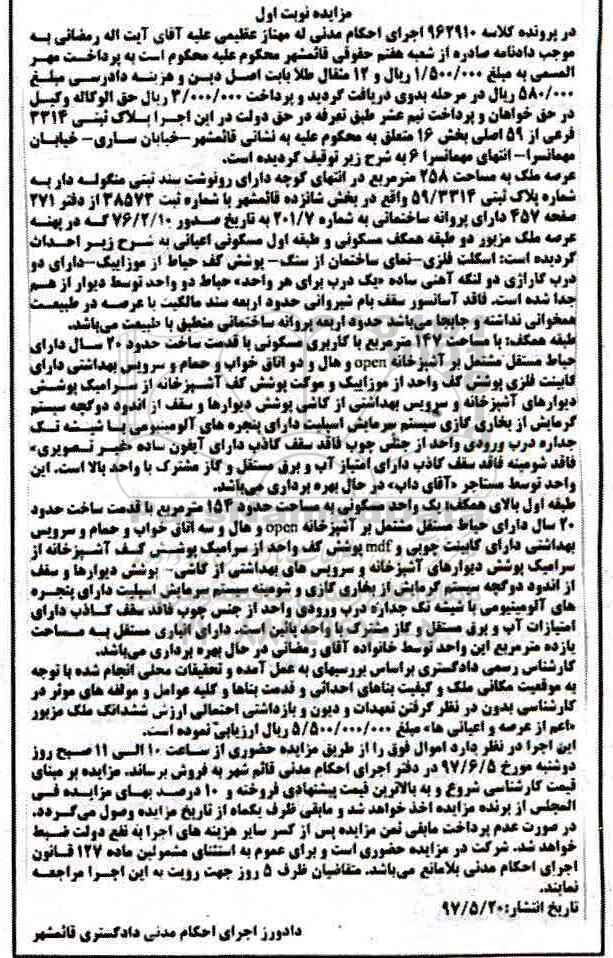 مزایده نوبت اول
در پرونده کلاسه ۹۶۲۹۱۰ اجرای احکام مدنی له مهناز عظیمی علیه آقای آیت اله رمضانی به
موجب دادنامه صادره از شعبه هفتم حقوقی قائمشهر محکوم علیه محکوم است به پرداخت مهر
المسمی به مبلغ ۱/۵۰۰/۰۰۰ ریال و ۱۲ مثقال طلا بابت اصل دین و هزینه دادرسی مبلغ
۵۸۰/۰۰۰ ریال در مرحله بدوی دریافت گردید و پرداخت ۳/۰۰۰/۰۰۰ ریال حق الوکاله وکیل
در حق خواهان و پرداخت نیم عشر طبق تعرفه در حق دولت در این اجرا پلاک ثبتی ۳۳۱۴
فرعی از ۵۹ اصلی بخش ۱۶ متعلق به محکوم علیه به نشانی قائمشهر-خیابان ساری- خیابان
مهمانسرا- انتهای مهمانسرا ۶ به شرح زیر توقیف گردیده است.
عرصه ملک به مساحت ۲۵۸ مترمربع در انتهای کوچه دارای رونوشت سند ثبتی منگوله دار به
شماره پلاک ثبتی ۵۹/۳۳۱۴ واقع در بخش شانزده قائمشهر با شماره ثبت ۳۸۵۷۳ از دفتر ۲۷۱
صفحه ۴۵۷ دارای پروانه ساختمانی به شماره ۲۰۱/۷ به تاریخ صدور ۷۶/۲/۱۰ که در پهنه
عرصه ملک مزبور دو طبقه همکف مسکونی و طبقه اول مسکونی اعیانی به شرح زیر احداث
گردیده است: اسکلت فلزی-نمای ساختمان از سنگ- پوشش کف حیاط از موزاییک-دارای دو
درب گاراژی دو لنگه آهنی ساده «یک درب برای هر واحد» حیاط دو واحد توسط دیوار از هم
جدا شده است. فاقد آسانسور سقف بام شیروانی حدود اربعه سند مالکیت با عرصه در طبیعت
همخوانی نداشته و جابجا می‌باشد حدود اربعه پروانه ساختمانی منطبق با طبیعت می‌باشد.
طبقه همکف: با مساحت ۱۴۷ مترمربع با کاربری مسکونی با قدمت ساخت حدود ۲۰ سال دارای
حیاط مستقل مشتمل بر آشپزخانه open و هال و دو اتاق خواب و حمام و سرویس بهداشتی دارای
کابینت فلزی پوشش کف واحد از موزاییک و موکت پوشش کف آشپزخانه از سرامیک پوشش
دیوارهای آشپزخانه و سرویس بهداشتی از کاشی پوشش دیوارها و سقف از اندود دوگچه سیستم
گرمایش از بخاری گازی سیستم سرمایش اسپلیت دارای پنجره های آلومینیومی با شیشه تک
جداره درب ورودی واحد از جنس چوب فاقد سقف کاذب دارای آیفون ساده «غیر تصویری»
فاقد شومینه فاقد سقف کاذب دارای امتیاز آب و برق مستقل و گاز مشترک با واحد بالا است. این
واحد توسط مستاجر «آقای داب» در حال بهره برداری می‌باشد.
طبقه اول بالای همکف: یک واحد مسکونی به مساحت حدود ۱۵۴ مترمربع با قدمت ساخت حدود
۲۰ سال دارای حیاط مستقل مشتمل بر آشپزخانه open و هال و سه اتاق خواب و حمام و سرویس
بهداشتی دارای کابینت چوبی و mdf پوشش کف واحد از سرامیک پوشش کف آشپزخانه از
سرامیک پوشش دیوارهای آشپزخانه و سرویس های بهداشتی از کاشی- پوشش دیوارها و سقف
از اندود دوگچه سیستم گرمایش از بخاری گازی و شومینه سیستم سرمایش اسپلیت دارای پنجره
های آلومینیومی با شیشه تک جداره درب ورودی واحد از جنس چوب فاقد سقف کاذب دارای
امتیازات آب و برق مستقل و گاز مشترک با واحد پائین است. دارای انباری مستقل به مساحت
یازده مترمربع این واحد توسط خانواده آقای رمضانی در حال بهره برداری می‌باشد.
کارشناس رسمی دادگستری براساس بررسیهای به عمل آمده و تحقیقات محلی انجام شده با توجه
به موقعیت مکانی ملک و کیفیت بناهای احداثی و قدمت بناها و کلیه عوامل و مولفه های موثر در
کارشناسی بدون در نظر گرفتن تعهدات و دیون و بازداشتی احتمالی ارزش ششدانگ ملک مزبور
«اعم از عرصه و اعیانی ها» مبلغ ۵/۵۰۰/۰۰۰/۰۰۰ ریال ارزیابی نموده است.
این اجرا در نظر دارد اموال فوق را از طریق مزایده حضوری از ساعت ۱۰ الی ۱۱ صبح روز
دوشنبه مورخ ۹۷/۶/۵ در دفتر اجرای احکام مدنی قائم شهر به فروش برساند. مزایده بر مبنای
قیمت کارشناسی شروع و به بالاترین قیمت پیشنهادی فروخته و ۱۰ درصد بهای مزایده فی
المجلس از برنده مزایده اخذ خواهد شد و مابقی ظرف یکماه از تاریخ مزایده وصول می‌گردد.
در صورت عدم پرداخت مابقی ثمن مزایده پس از کسر سایر هزینه های اجرا به نفع دولت ضبط
خواهد شد. شرکت در مزایده حضوری است و برای عموم به استثنای مشمولین ماده ۱۲۷ قانون
اجرای احکام مدنی بلامانع می‌باشد. متقاضیان ظرف ۵ روز جهت رویت به این اجرا مراجعه
نمایند.
تاریخ انتشار: ۹۷/۵/۲۰
دادورز اجرای احکام مدنی دادگستری قائمشهر